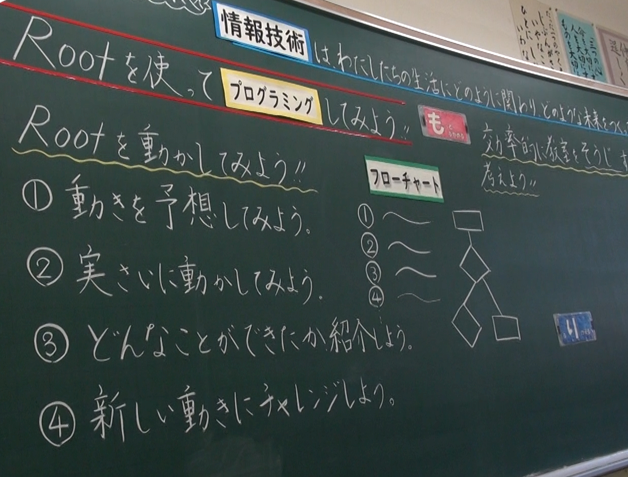 情報技術は、わたしたちの生活にどのように関わり、どのような未来を
Rootを使ってプログラミングしてみよう!!
も
Rootを動かしてみよう!!
① 動きを予想してみよう。
② 実さいに動かしてみよう。
③ どんなことができたか紹介しよう。
④ 新しい動きにチャレンジしよう。
フローチャート
①
②
③
④
効率的に教室をそうじ
考えよう!!
り